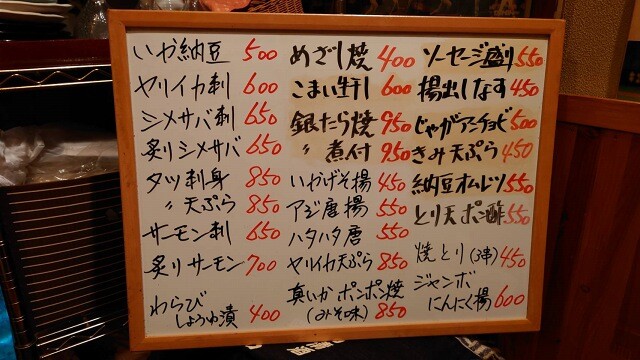 いか納豆 500
ヤリイカ刺 600
シメサバ刺 650
炙りシメサバ 650
タツ刺身 850
〃天ぷら 850
サーモン刺 650
炙りサーモン 700
わらび
しょうゆ漬 400
めざし焼 400
こまい生干し 600
銀たら焼 950
〃 煮付 950
いかげそ揚 450
アジ唐揚 550
ハタハタ唐 550
ヤリイカ天ぷら 850
真いかポンポン焼
(みそ味) 850
ソーセージ盛り 550
揚出しなす 450
じゃがアンチョビ 500
きみ天ぷら 450
納豆オムレツ 550
とり天ポン酢 550
焼とり(3串) 450
ジャンボ
にんにく揚 600